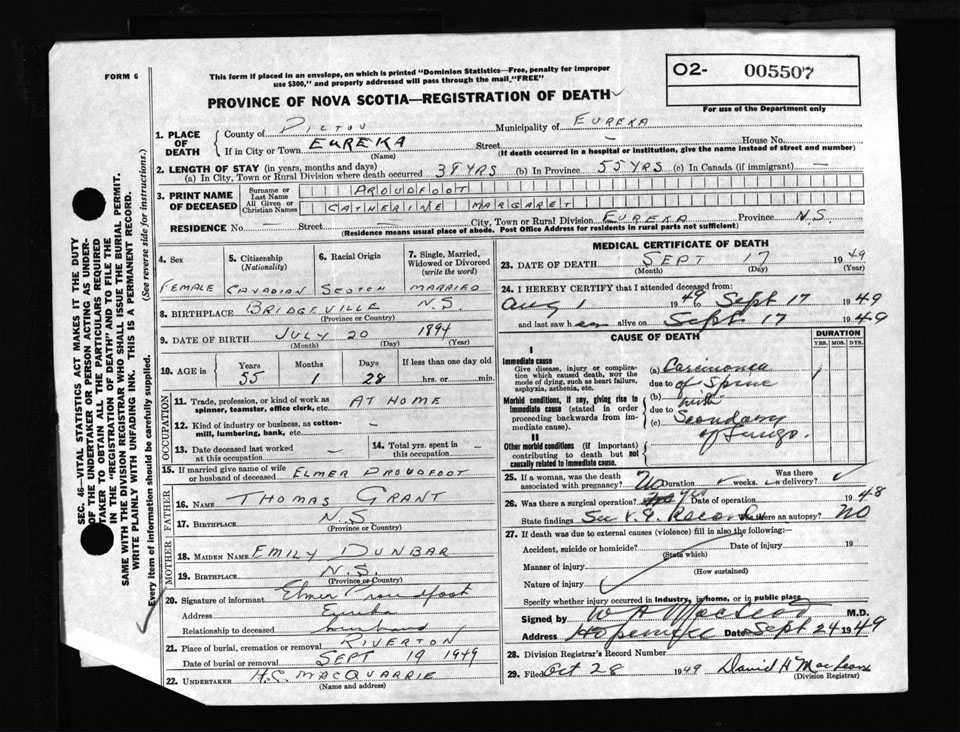 FORM 6
This form if placed in an envelope, on which is printed "Dominion Statistics—Free, penalty for improper
use $300," and properly addressed will pass through the mail "FREE"
PROVINCE OF NOVA SCOTIA—REGISTRATION OF DEATH
O2- 005507
For use of the Department only
1. PLACE OF DEATH
County of PICTOU Municipality of EUREKA
If in City or Town EUREKA Street — House No.
(Name) (If death occurred in a hospital or institution, give the name instead of street and number)
2. LENGTH OF STAY (in years, months and days)
(a) In City, Town or Rural Division where death occurred 38 YRS (b) In Province 55 YRS (c) In Canada (if immigrant) —
3. PRINT NAME OF DECEASED
Surname or Last Name PROUDFOOT
All Given or Christian Names CATHERINE MARGARET
RESIDENCE No. — Street — City, Town or Rural Division EUREKA Province N.S.
(Residence means usual place of abode. Post Office Address for residents in rural parts not sufficient)
4. Sex
FEMALE
5. Citizenship
(Nationality)
CANADIAN
6. Racial Origin
SCOTCH
7. Single, Married,
Widowed or Divorced
(write the word)
MARRIED
8. BIRTHPLACE BRIDGEVILLE N.S.
(Province or Country)
9. DATE OF BIRTH JULY 20 1894
(Month) (Day) (Year)
10. AGE in
Years Months Days If less than one day old
55 1 28 hrs. or min.
OCCUPATION
11. Trade, profession, or kind of work as
spinner, teamster, office clerk, etc. AT HOME
12. Kind of industry or business, as cotton-
mill, lumbering, bank, etc. —
13. Date deceased last worked
at this occupation —
14. Total yrs. spent in
this occupation —
15. If married give name of wife
or husband of deceased ELMER PROUDFOOT
FATHER
16. NAME THOMAS GRANT
17. BIRTHPLACE N.S.
(Province or Country)
MOTHER
18. MAIDEN NAME EMILY DUNBAR
19. BIRTHPLACE N.S.
(Province or Country)
20. Signature of informant Elmer Proudfoot
Address Eureka
Relationship to deceased husband
21. Place of burial, cremation or removal RIVERTON
Date of burial or removal SEPT 19 1949
22. UNDERTAKER H.C. MACQUARRIE
(Name and address)
MEDICAL CERTIFICATE OF DEATH
23. DATE OF DEATH SEPT 17 1949
(Month) (Day) (Year)
24. I HEREBY CERTIFY that I attended deceased from:
Aug 1 1949 to Sept 17 1949
and last saw her alive on Sept 17 1949
CAUSE OF DEATH
DURATION
YRS. MOS. DYS.
I
Immediate cause
Give disease, injury or complica-
tion which caused death, NOT the
mode of dying, such as heart failure,
asphyxia, asthenia, etc.
(a) Carcinoma 1
due to of Spine
Morbid conditions, if any, giving rise to
immediate cause (stated in order
proceeding backwards from im-
mediate cause).
(b) with
due to
(c) Secondary
of Lungs.
II
Other morbid conditions (if important)
contributing to death but not
causally related to immediate cause.
25. If a woman, was the death
associated with pregnancy? No Duration weeks. Was there
a delivery?
26. Was there a surgical operation? Yes Date of operation 1948
State findings See V.G. Records Was there an autopsy? NO
27. If death was due to external causes (violence) fill in also the following:—
Accident, suicide or homicide? Date of injury 19
(State which)
Manner of injury
(How sustained)
Nature of injury
Specify whether injury occurred in industry, in home, or in public place
Signed by W A MacLeod M.D.
Address Hopewell Date Sept 24 1949
28. Division Registrar's Record Number
29. Filed Oct 28 1949 David H MacLean
(Division Registrar)
SEC. 46—VITAL STATISTICS ACT MAKES IT THE DUTY
OF THE UNDERTAKER OR PERSON ACTING AS UNDER-
TAKER TO OBTAIN ALL THE PARTICULARS REQUIRED
IN THE "REGISTRATION OF DEATH" AND TO FILE THE
SAME WITH THE DIVISION REGISTRAR WHO SHALL ISSUE THE BURIAL PERMIT.
WRITE PLAINLY WITH UNFADING INK. THIS IS A PERMANENT RECORD.
Every item of information should be carefully supplied. (See reverse side for instructions.)